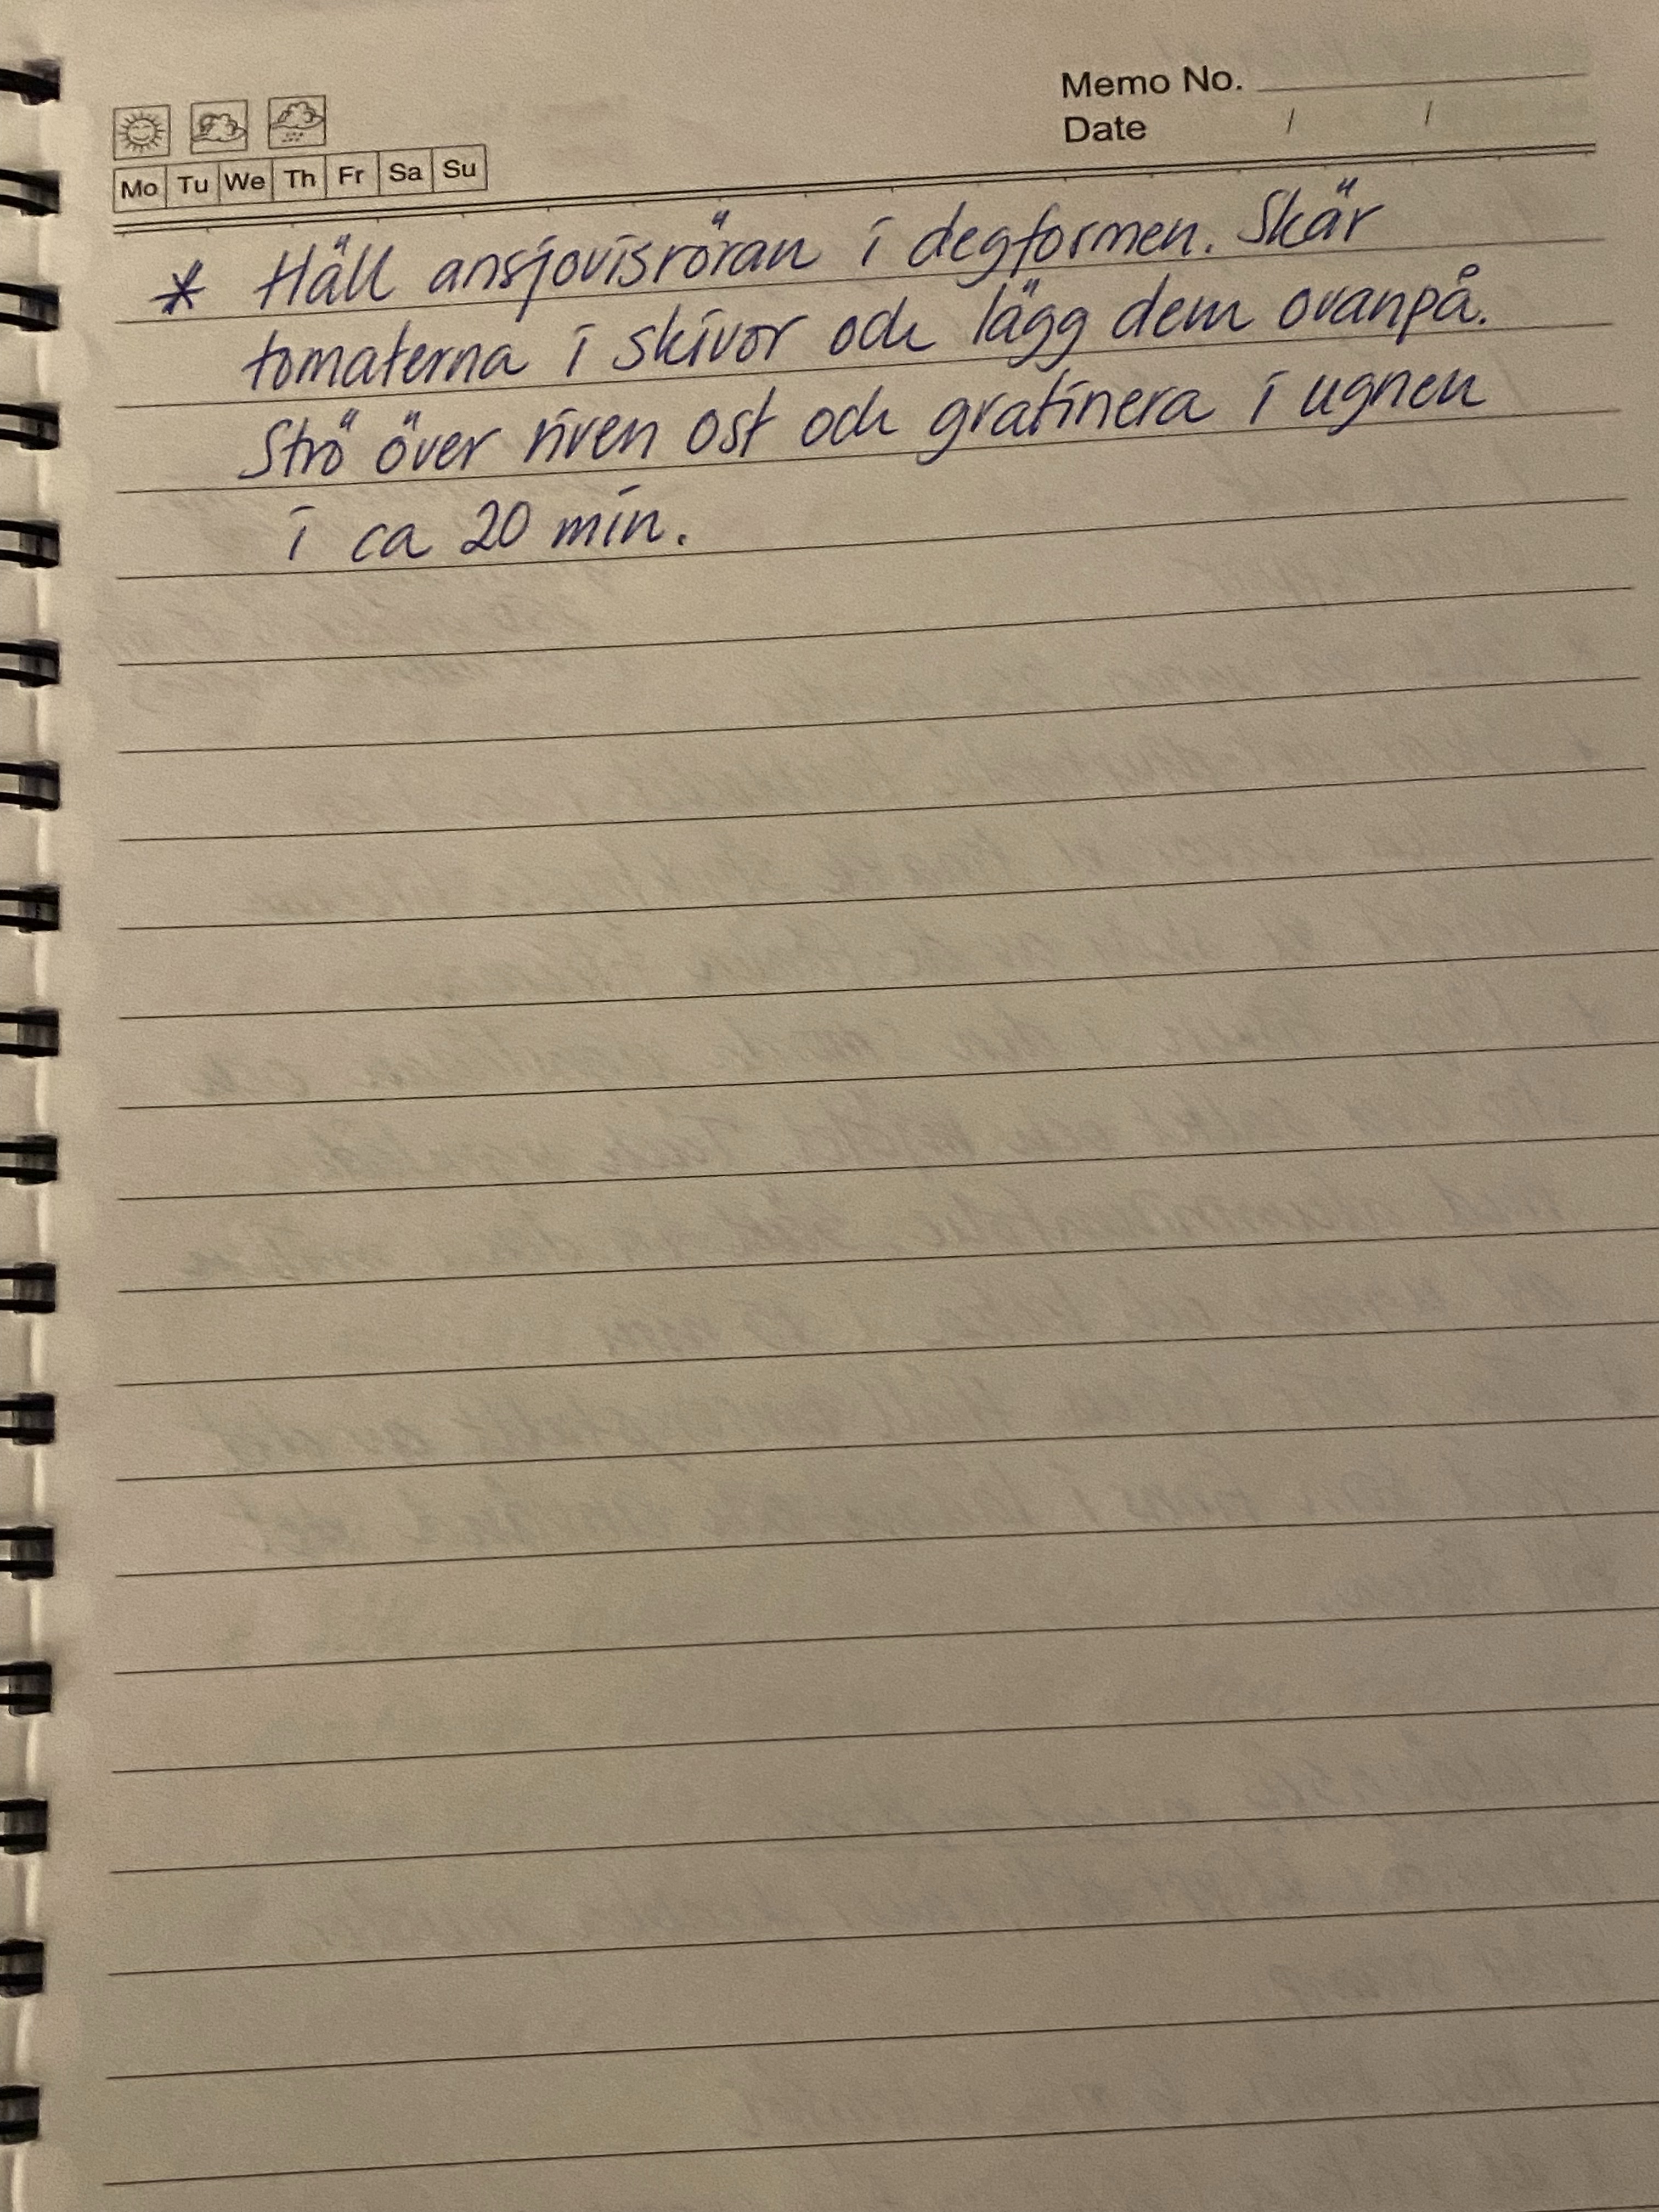 Memo No.
Date / /
Mo Tu We Th Fr Sa Su
* Häll ansjovisröran i degformen. Skär
tomaterna i skivor och lägg dem ovanpå.
Strö över riven ost och gratinera i ugnen
i ca 20 min.